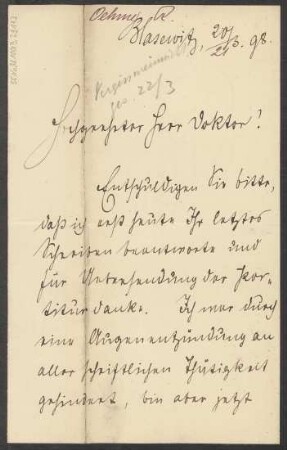 Oehme, R.
Blasewitz, 20/3. 98.
Vergissmeinnicht
22/3
Hochgeehrter Herr Doktor!
Entschuldigen Sie bitte,
daß ich erst heute Ihr letztes
Schreiben beantworte und
für Uebersendung der Par-
titur danke. Ich war durch
eine Augenentzündung an
aller schriftlichen Thätigkeit
gehindert, bin aber jetzt